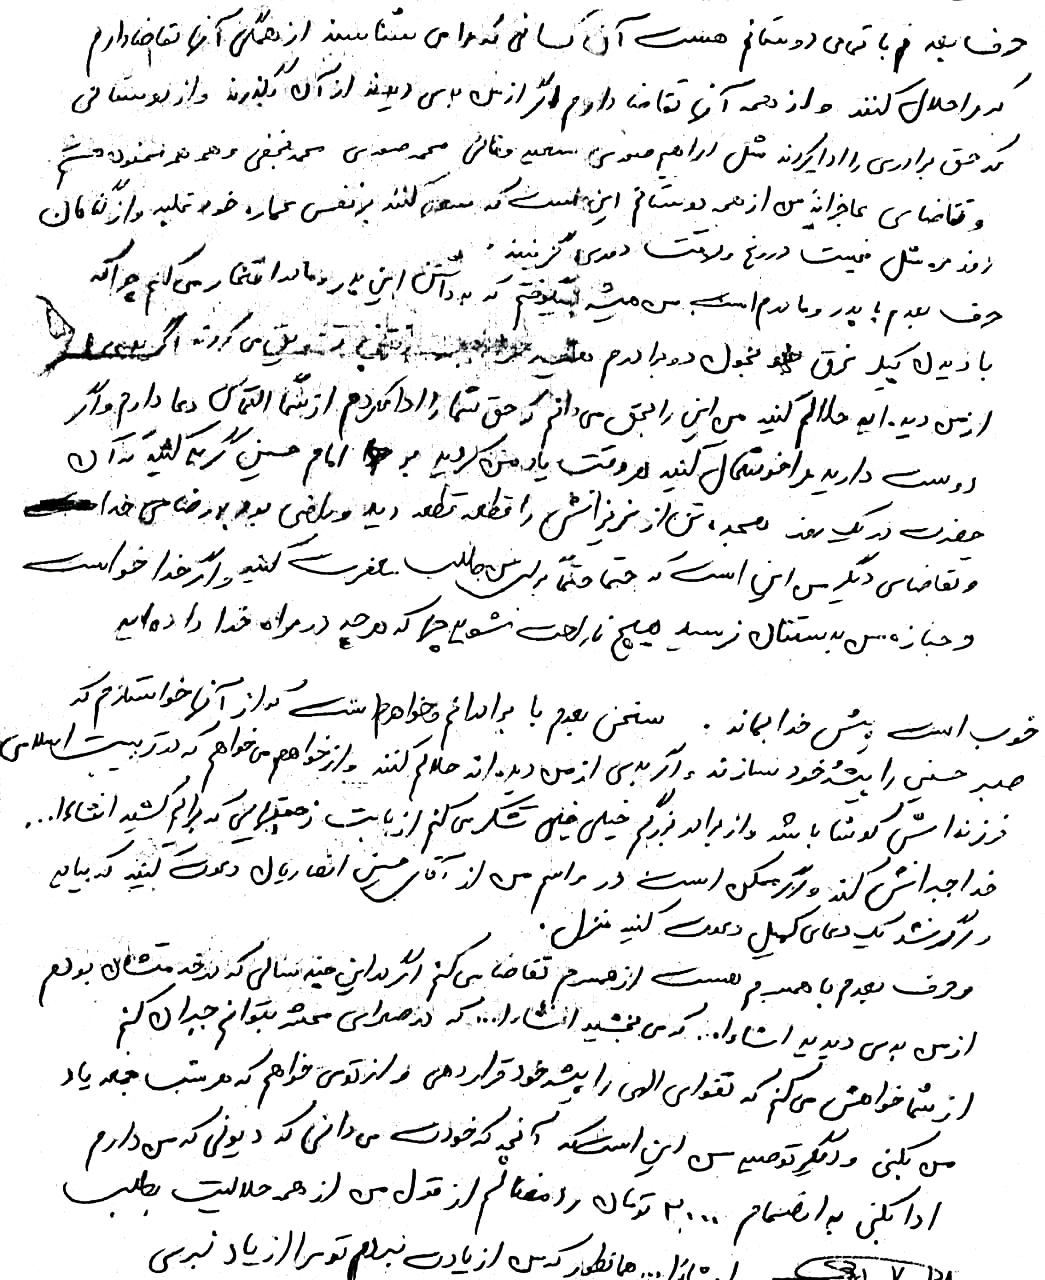 حرف بعدیم با تمامی دوستانم هست آن کسانی که مرا می شناسند از همگی آنها تقاضا دارم
که مرا حلال کنند و از همه آنها تقاضا دارم اگر از من بدی دیدند از آن بگذرند و از دوستانی
که حق برادری را ادا کردند مثل ابراهیم صبوری سعید محمد صبوری محمد نجفی و همه همه ممنون هستم
و تقاضای عاجزانه من از همه دوستانم این است که سعی کنند بر نفس اماره خود غلبه و از گناهان
روزمره مثل غیبت دروغ و دوری گزینند.
حرف بعدیم با پدر و مادرم است من همیشه که به داشتن این پدر و مادر افتخار می کنم چرا که
با دیدن پیکر غرق خون دو برادرم می کردند اگر بدی
از من دیده اید حلالم کنید من این را بحق می دانم که حق شما را ادا نکردم از شما التماس دعا دارم و اگر
دوست دارید مرا خوشحال کنید هر وقت یاد من کردید بر امام حسین گریه کنید که آن
حضرت در یک روز تن از عزیزانش را قطعه قطعه دید و راضی بود به رضای خدا
و تقاضای دیگر من این است که حتما حتماً برای من طلب مغفرت کنید و اگر خدا خواست
و جنازه من بدستتان نرسید هیچ ناراحت نشوید چرا که هر چه در راه خدا داده اید
خوب است پیش خدا بماند. سخن بعدیم با برادرانم و خواهرم است که از آنها خواستارم که
صبر حسینی را پیشه خود سازند و اگر بدی از من دیده اند حلالم کنند و از خواهرم می خواهم که در تربیت اسلامی
فرزندانش کوشا باشد و از برادر بزرگم خیلی خیلی تشکر می کنم از بابت زحمتهایی که برایم کشید انشاءا...
خدا جبرانش کند و اگر ممکن است در مراسم من از آقای حسین انصاریان دعوت کنید که بیاید
و اگر نشد یک دعای کمیل دعوت کنید منزل.
و حرف بعدیم با همسرم هست از همسرم تقاضا می کنم اگر در این چند سالی که در خدمتشان بودم
از من بدی دیدید انشاءا... که می بخشید انشاءا... که در صحرای محشر بتوانم جبران کنم
از شما خواهش می کنم که تقوای الهی را پیشه خود قرار دهی و از تو می خواهم که هر شب جمعه یاد
من بکنی و دیگر توصیه من این است که آنچه که خودت می دانی که دیونی که من دارم
ادا بکنی به انضمام تومان از قول من از همه حلالیت بطلب
انشاءا... همانطور که من از یادت نبردم تو مرا از یاد نبری